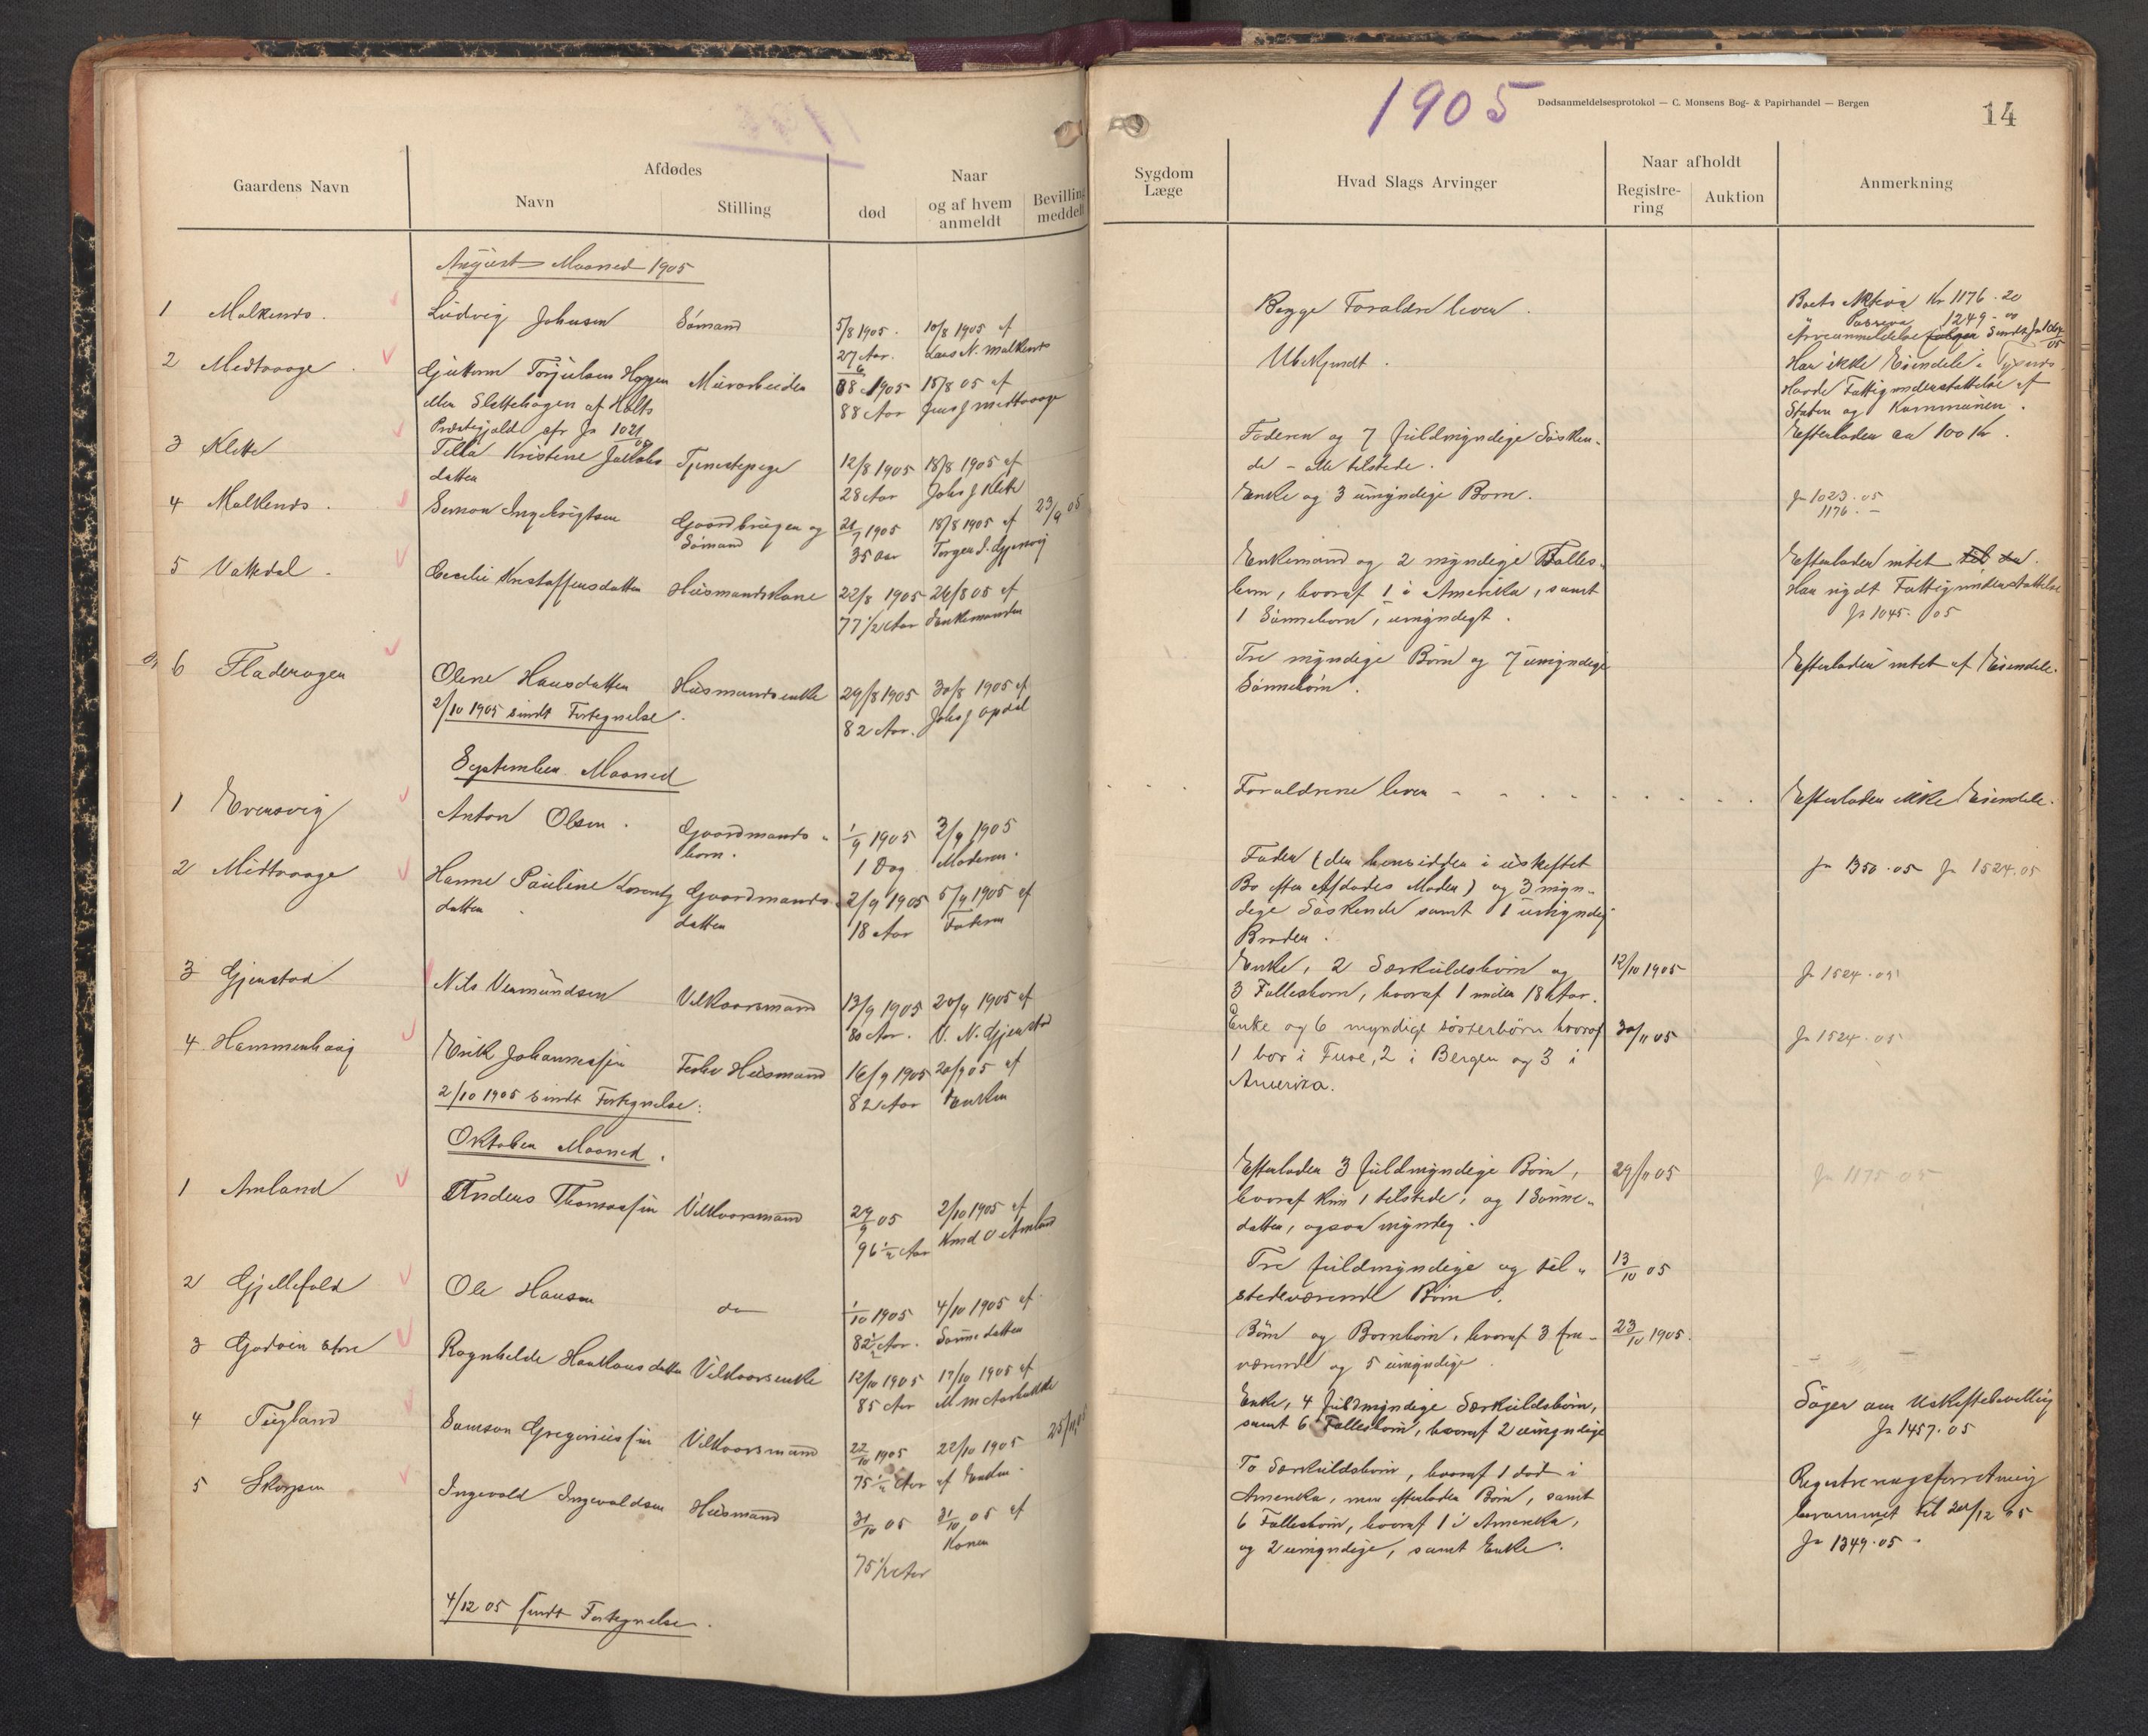 1905
Dødsanmeldelsesprotokol — C. Monsens Bog- & Papirhandel — Bergen
14
Gaardens Navn
Afdødes
Navn
Stilling
Naar
død
og af hvem anmeldt
Bevilling meddelt
Sygdom Læge
Hvad Slags Arvinger
Naar afholdt
Registre-ring
Auktion
Anmerkning
August Maaned 1905
1 Malkenes. Ludvig Johnsen Sömand 5/8 1905. 10/8 1905 af Begge Forældre lever. Boets Aktiva Kr 1176.20
27 Aar. Lars N. Malkenes Passiva 1249.
2 Midtvaage Murarbeider 1905 15/8 05 af Ubekjendt. Har ikke Eiendele.
eller Slettehagen af Holts 88 Aar Jens J Midtvaage Havde Fattigunderstøttelse af
Præstegjæld Jr 1021 Staten og Kommunen.
3 Klette Kristine Jakobs Tjenestepige 12/8 1905 18/8 1905 af Faderen og 7 fuldmyndige Sösken- Efterlader ca 100 Kr.
datter 28 Aar Johs J Klette de - alle tilstede.
4 Malkenes. Simon Ingebrigtsen Gaardbruger og 1905 18/8 1905 af 23/9 05 Enke og 3 umyndige Born. Jr 1023.05
Sömand 35 Aar 1176. -
5 Vakdal. Cecilie Kristoffersdatter Husmandskone 22/8 1905 24/8 05 af Enkemand og 2 myndige Fælles- Efterlader intet
77 1/2 Aar Enkemanden born, hvoraf 1 i Amerika, samt Har nydt Fattigunderstøttelse
1 Sönneborn, umyndigt. Jr 1045. 05
6 Fladerager Olene Hansdatter Husmandsenke 29/8 1905 30/8 1905 af Tre myndige Börn og 7 umyndige Efterlader intet af Eiendele.
2/10 1905 sendt Fortegnelse. 82 Aar. Johs J Opdal Sönnebörn.
September Maaned
1 Evensvig Anton Olsen. Gaardmands- 1/9 1905 2/9 1905 Forældrene lever Efterlader ikke Eiendele.
born. 1 Dag Moderen.
2 Midtvaage Hanne Pauline Gaardmands- 2/9 1905 5/9 1905 af Fader (der hensidder i uskiftet Jr 1350.05 Jr 1524.05
datter datter 18 Aar Faderen Bo efter Afdødes Moder) og 3 myn-
dige Söskende samt 1 umyndig
Broder.
3 Gjerstad Nils Vermundsen Vilkaarsmand 13/9 1905 20/9 1905 af Enke, 2 Særkuldsborn og 12/10 1905 Jr 1524.05
80 Aar. V. N. Gjerstad 3 Fællesborn, hvoraf 1 under 18 Aar.
4 Hammerhaug Erik Johannessen Husmand 16/9 1905 20/9 05 af Enke og 6 myndige sösterbörn hvoraf 30/11 05 Jr 1524.05
2/10 1905 sendt Fortegnelse. 82 Aar Enken 1 bor i Fuse, 2 i Bergen og 3 i
Amerika.
Oktober Maaned.
1 Amland Anders Thomassen Vilkaarsmand 29/9 05 2/10 1905 af Efterlader 3 fuldmyndige Börn, 29/11 05 Jr 1175 05
96 1/2 Aar Knud O Amland hvoraf kun 1 tilstede, og 1 Sönne-
datter, ogsaa myndig.
2 Gjellefald Ole Hansen do 1/10 1905 4/10 1905 af Tre fuldmyndige og til- 13/10 05
82 1/2 Aar. Sönnedatter stedeværende Börn.
3 Godöen store Ragnhilde Haakonsdatter Vilkaarsenke 12/10 1905 17/10 1905 af Börn og Bornborn, hvoraf 3 fra- 23/10 1905.
85 Aar værende og 5 umyndige.
4 Tugland Samson Gregoriussen Vilkaarsmand 22/10 1905 22/10 1905 25/11 Enke, 4 fuldmyndige Særkuldsborn, Söger om Uskiftebevilling
75 1/2 Aar af Enken. samt 6 Fællesborn, hvoraf 2 umyndige Jr 1457.05
5 Skorpen Ingevald Ingevaldsen Husmand 31/10 05 31/10 05 af To Særkuldsborn, hvoraf 1 död i Registreringsforretning
75 1/2 Aar Konen Amerika, men efterlader Börn, samt berammet til 20/12 05
6 Fællesborn, hvoraf 1 i Amerika, Jr 1349.05
og 2 umyndige, samt Enke.
4/12 05 sendt Fortegnelse.